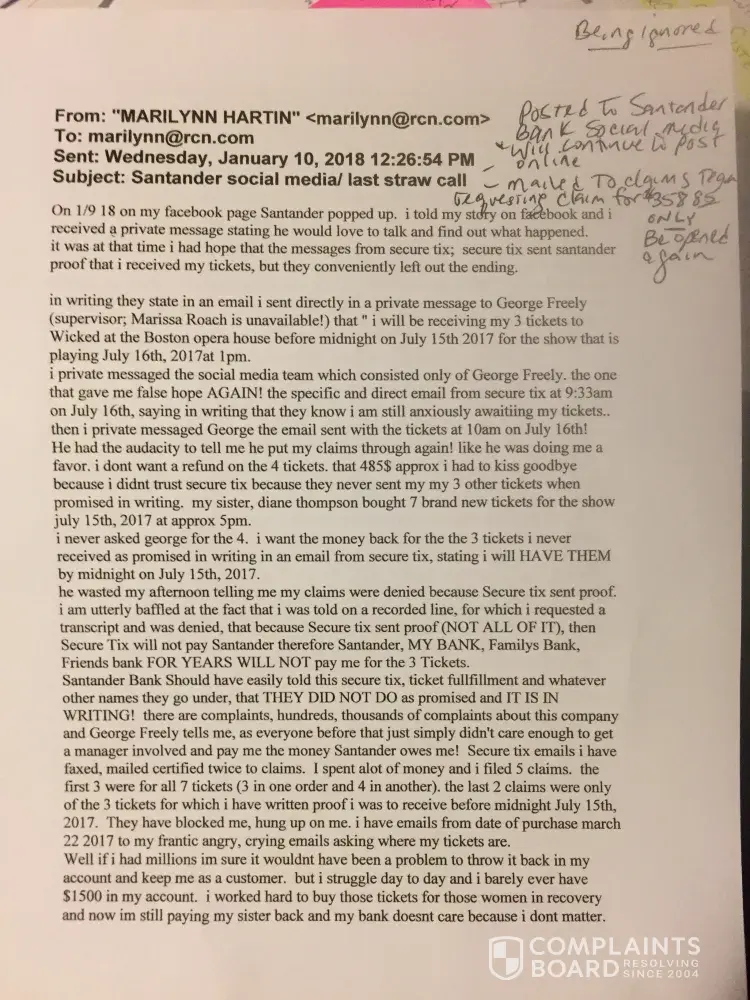 Being ignored
From: "MARILYNN HARTIN" <marilynn@rcn.com>
To: marilynn@rcn.com
Sent: Wednesday, January 10, 2018 12:26:54 PM
Subject: Santander social media/ last straw call
Posted to Santander
Bank Social media
will continue to post
online
- mailed To claims Team
requesting claim for $358 85
only
Be opened
again
On 1/9 18 on my facebook page Santander popped up. i told my story on facebook and i
received a private message stating he would love to talk and find out what happened.
it was at that time i had hope that the messages from secure tix; secure tix sent santander
proof that i received my tickets, but they conveniently left out the ending.
in writing they state in an email i sent directly in a private message to George Freely
(supervisor; Marissa Roach is unavailable!) that " i will be receiving my 3 tickets to
Wicked at the Boston opera house before midnight on July 15th 2017 for the show that is
playing July 16th, 2017at 1pm.
i private messaged the social media team which consisted only of George Freely. the one
that gave me false hope AGAIN! the specific and direct email from secure tix at 9:33am
on July 16th, saying in writing that they know i am still anxiously awaitiing my tickets..
then i private messaged George the email sent with the tickets at 10am on July 16th!
He had the audacity to tell me he put my claims through again! like he was doing me a
favor. i dont want a refund on the 4 tickets. that 485$ approx i had to kiss goodbye
because i didnt trust secure tix because they never sent my my 3 other tickets when
promised in writing. my sister, diane thompson bought 7 brand new tickets for the show
july 15th, 2017 at approx 5pm.
i never asked george for the 4. i want the money back for the the 3 tickets i never
received as promised in writing in an email from secure tix, stating i will HAVE THEM
by midnight on July 15th, 2017.
he wasted my afternoon telling me my claims were denied because Secure tix sent proof.
i am utterly baffled at the fact that i was told on a recorded line, for which i requested a
transcript and was denied, that because Secure tix sent proof (NOT ALL OF IT), then
Secure Tix will not pay Santander therefore Santander, MY BANK, Familys Bank,
Friends bank FOR YEARS WILL NOT pay me for the 3 Tickets.
Santander Bank Should have easily told this secure tix, ticket fullfillment and whatever
other names they go under, that THEY DID NOT DO as promised and IT IS IN
WRITING! there are complaints, hundreds, thousands of complaints about this company
and George Freely tells me, as everyone before that just simply didn't care enough to get
a manager involved and pay me the money Santander owes me! Secure tix emails i have
faxed, mailed certified twice to claims. I spent alot of money and i filed 5 claims. the
first 3 were for all 7 tickets (3 in one order and 4 in another). the last 2 claims were only
of the 3 tickets for which i have written proof i was to receive before midnight July 15th,
2017. They have blocked me, hung up on me. i have emails from date of purchase march
22 2017 to my frantic angry, crying emails asking where my tickets are.
Well if i had millions im sure it wouldnt have been a problem to throw it back in my
account and keep me as a customer. but i struggle day to day and i barely ever have
$1500 in my account. i worked hard to buy those tickets for those women in recovery
and now im still paying my sister back and my bank doesnt care because i dont matter.
COMPLAINTS
BOARD RESOLVING SINCE 2004